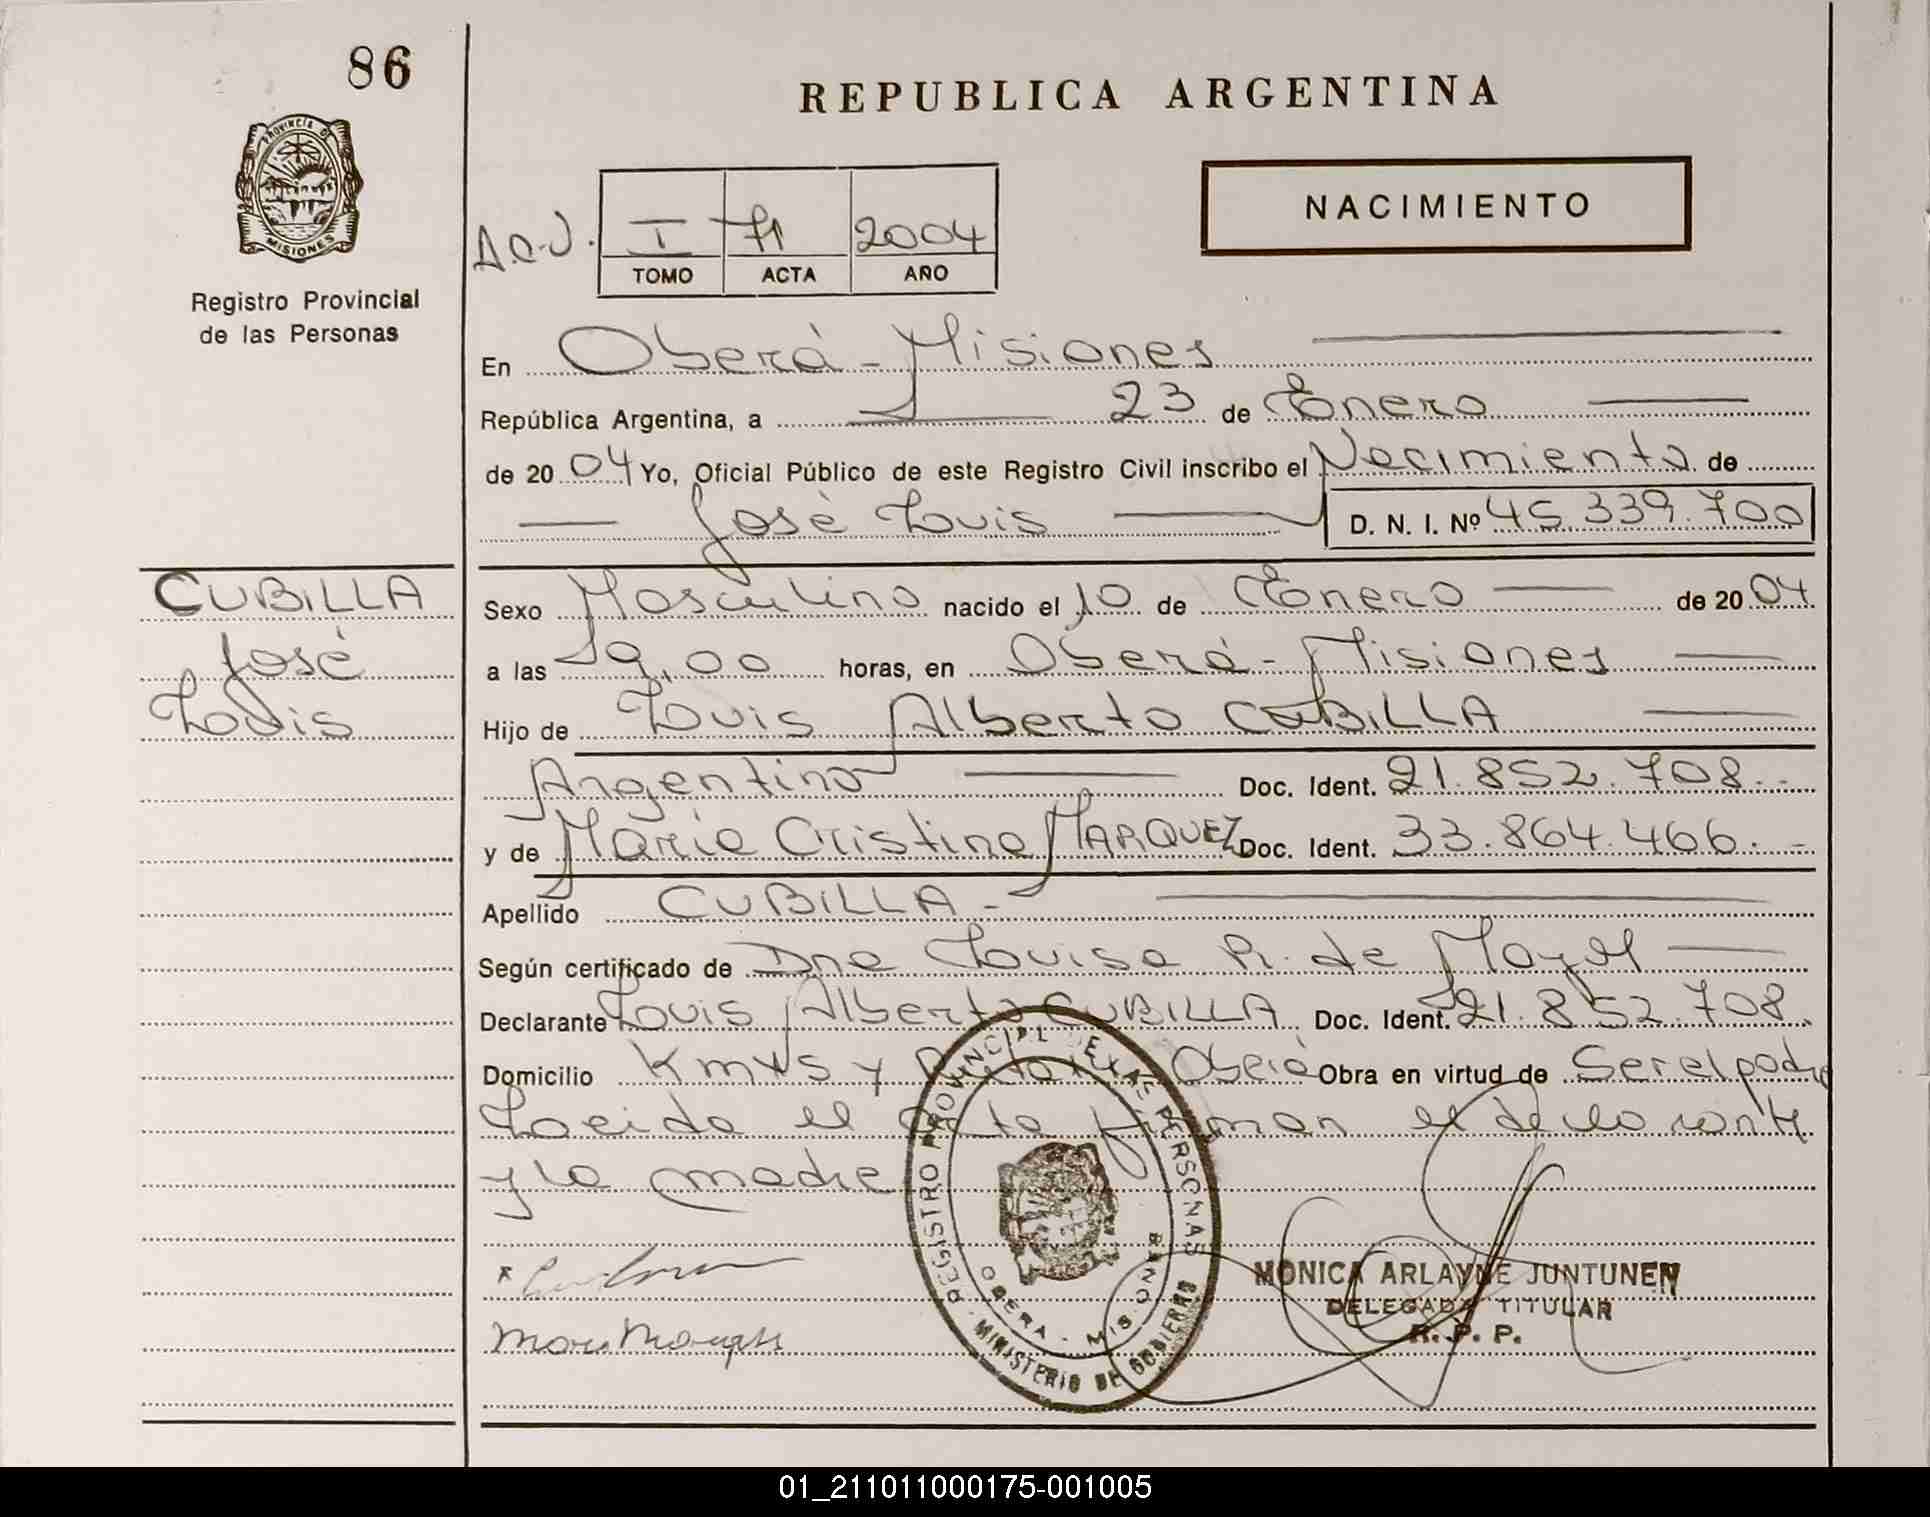 86
PROVINCIA DE
MISIONES
Registro Provincial
de las Personas
REPUBLICA ARGENTINA
NACIMIENTO
I 71 2004
TOMO ACTA AÑO
En Oberá - Misiones
República Argentina, a 23 de Enero
de 2004 Yo, Oficial Público de este Registro Civil inscribo el Nacimiento de
José Luis D. N. I. Nº 45.339.700
CUBILLA
José
Luis
Sexo Masculino nacido el 10 de Enero de 2004
a las 19,00 horas, en Oberá - Misiones
Hijo de Luis Alberto CUBILLA
Argentino Doc. Ident. 21.852.708.-
y de María Cristina MARQUEZ Doc. Ident. 33.864.466.-
Apellido CUBILLA -
Según certificado de Dra Luisa R. de
Declarante Luis Alberto CUBILLA Doc. Ident. 21.852.708.
Domicilio y Oberá Obra en virtud de Ser el padre
Leida el Acta firman el declarante
y la madre
REGISTRO PROVINCIAL DE LAS PERSONAS
MINISTERIO DE GOBIERNO
OBERA - MISIONES
MONICA ARLAYNE JUNTUNEN
DELEGADA TITULAR
R. P. P.
01_211011000175-001005